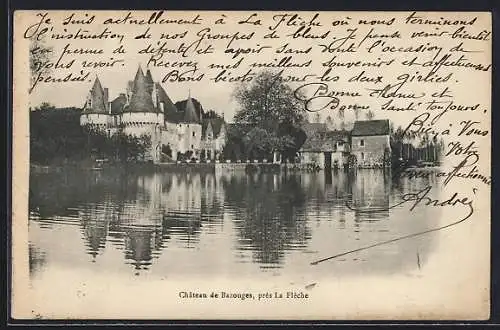 Je suis actuellement à La Flèche où nous terminons
l'instruction de nos Groupes de bleus. Je pense venir bientôt
en perme de détente et avoir sans doute l'occasion de
vous revoir. Recevez mes meilleurs souvenirs et affectueuses
pensées. Bons becots pour les deux girlies.
Bonne chance et
Bonne Santé toujours.
Bien à Vous
affect.
André
Château de Bazouges, près La Flèche